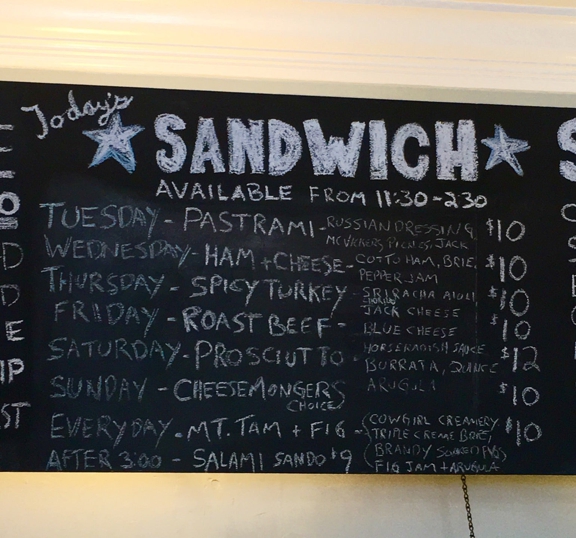 Today's
SANDWICH
AVAILABLE FROM 11:30-230
TUESDAY - PASTRAMI - RUSSIAN DRESSING, $10
PICKLES, JACK
WEDNESDAY - HAM + CHEESE - COTTO HAM, BRIE, $10
PEPPER JAM
THURSDAY - SPICY TURKEY - SRIRACHA AIOLI $10
JACK CHEESE
FRIDAY - ROAST BEEF - BLUE CHEESE $10
HORSERADISH SAUCE
SATURDAY - PROSCIUTTO - BURRATA, QUINCE $12
ARUGULA
SUNDAY - CHEESEMONGERS $10
CHOICE
EVERYDAY - MT. TAM + FIG - COWGIRL CREAMERY $10
TRIPLE CREME BRIE,
BRANDY SOAKED FIGS
AFTER 3:00 - SALAMI SANDO $9
FIG JAM + ARUGULA